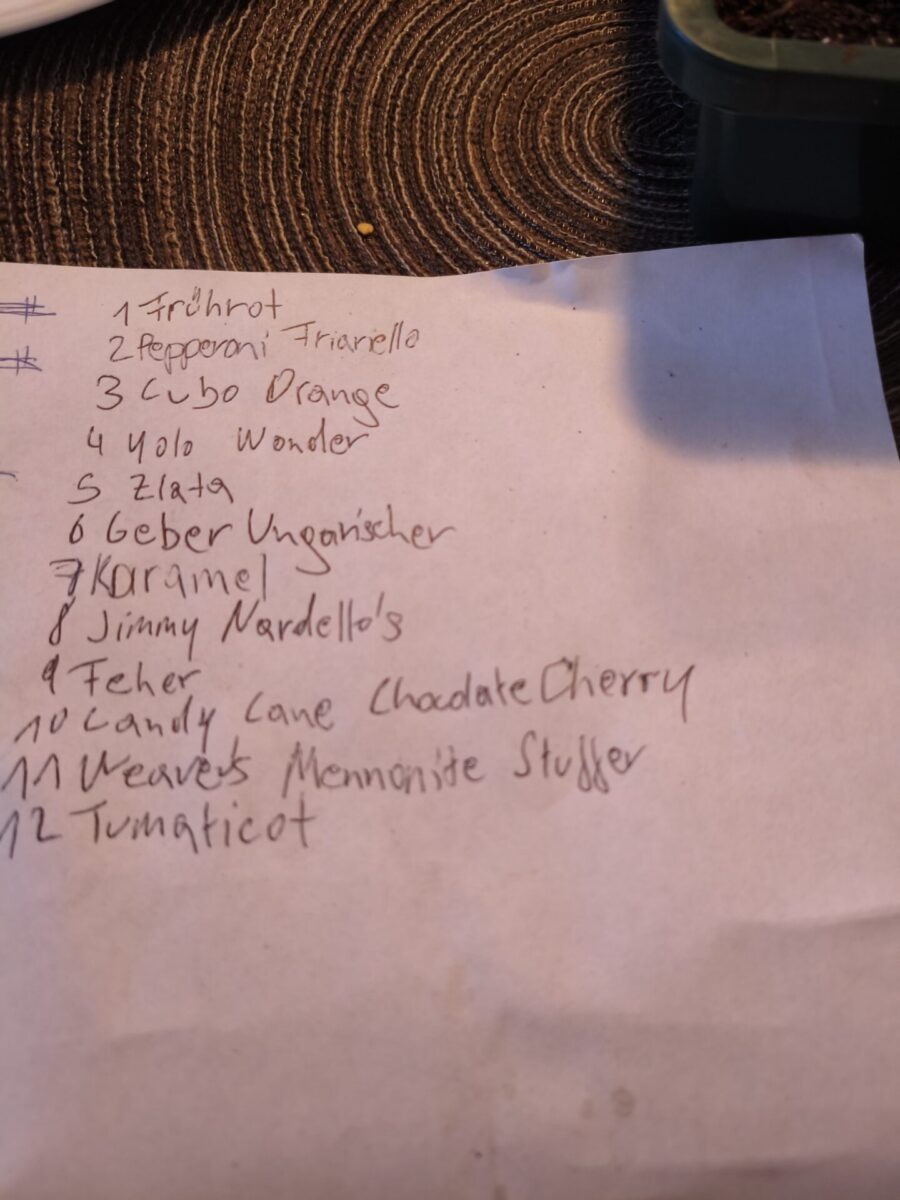 1 Frührot
2 Pepperoni Friariello
3 Cubo Orange
4 Yolo Wonder
5 Zlata
6 Geber Ungarischer
7 Karamel
8 Jimmy Nardello's
9 Feher
10 Candy Cane Chocolate Cherry
11 Weavers Mennonite Stuffer
12 Tumaticot